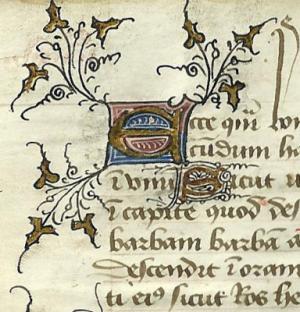 Ecce quā bon
cūdum ha
ī vnū Sicut u
ī capite quod des
barbam barbā a
descendit ī oram
ti eiꝰ sicut Ros he